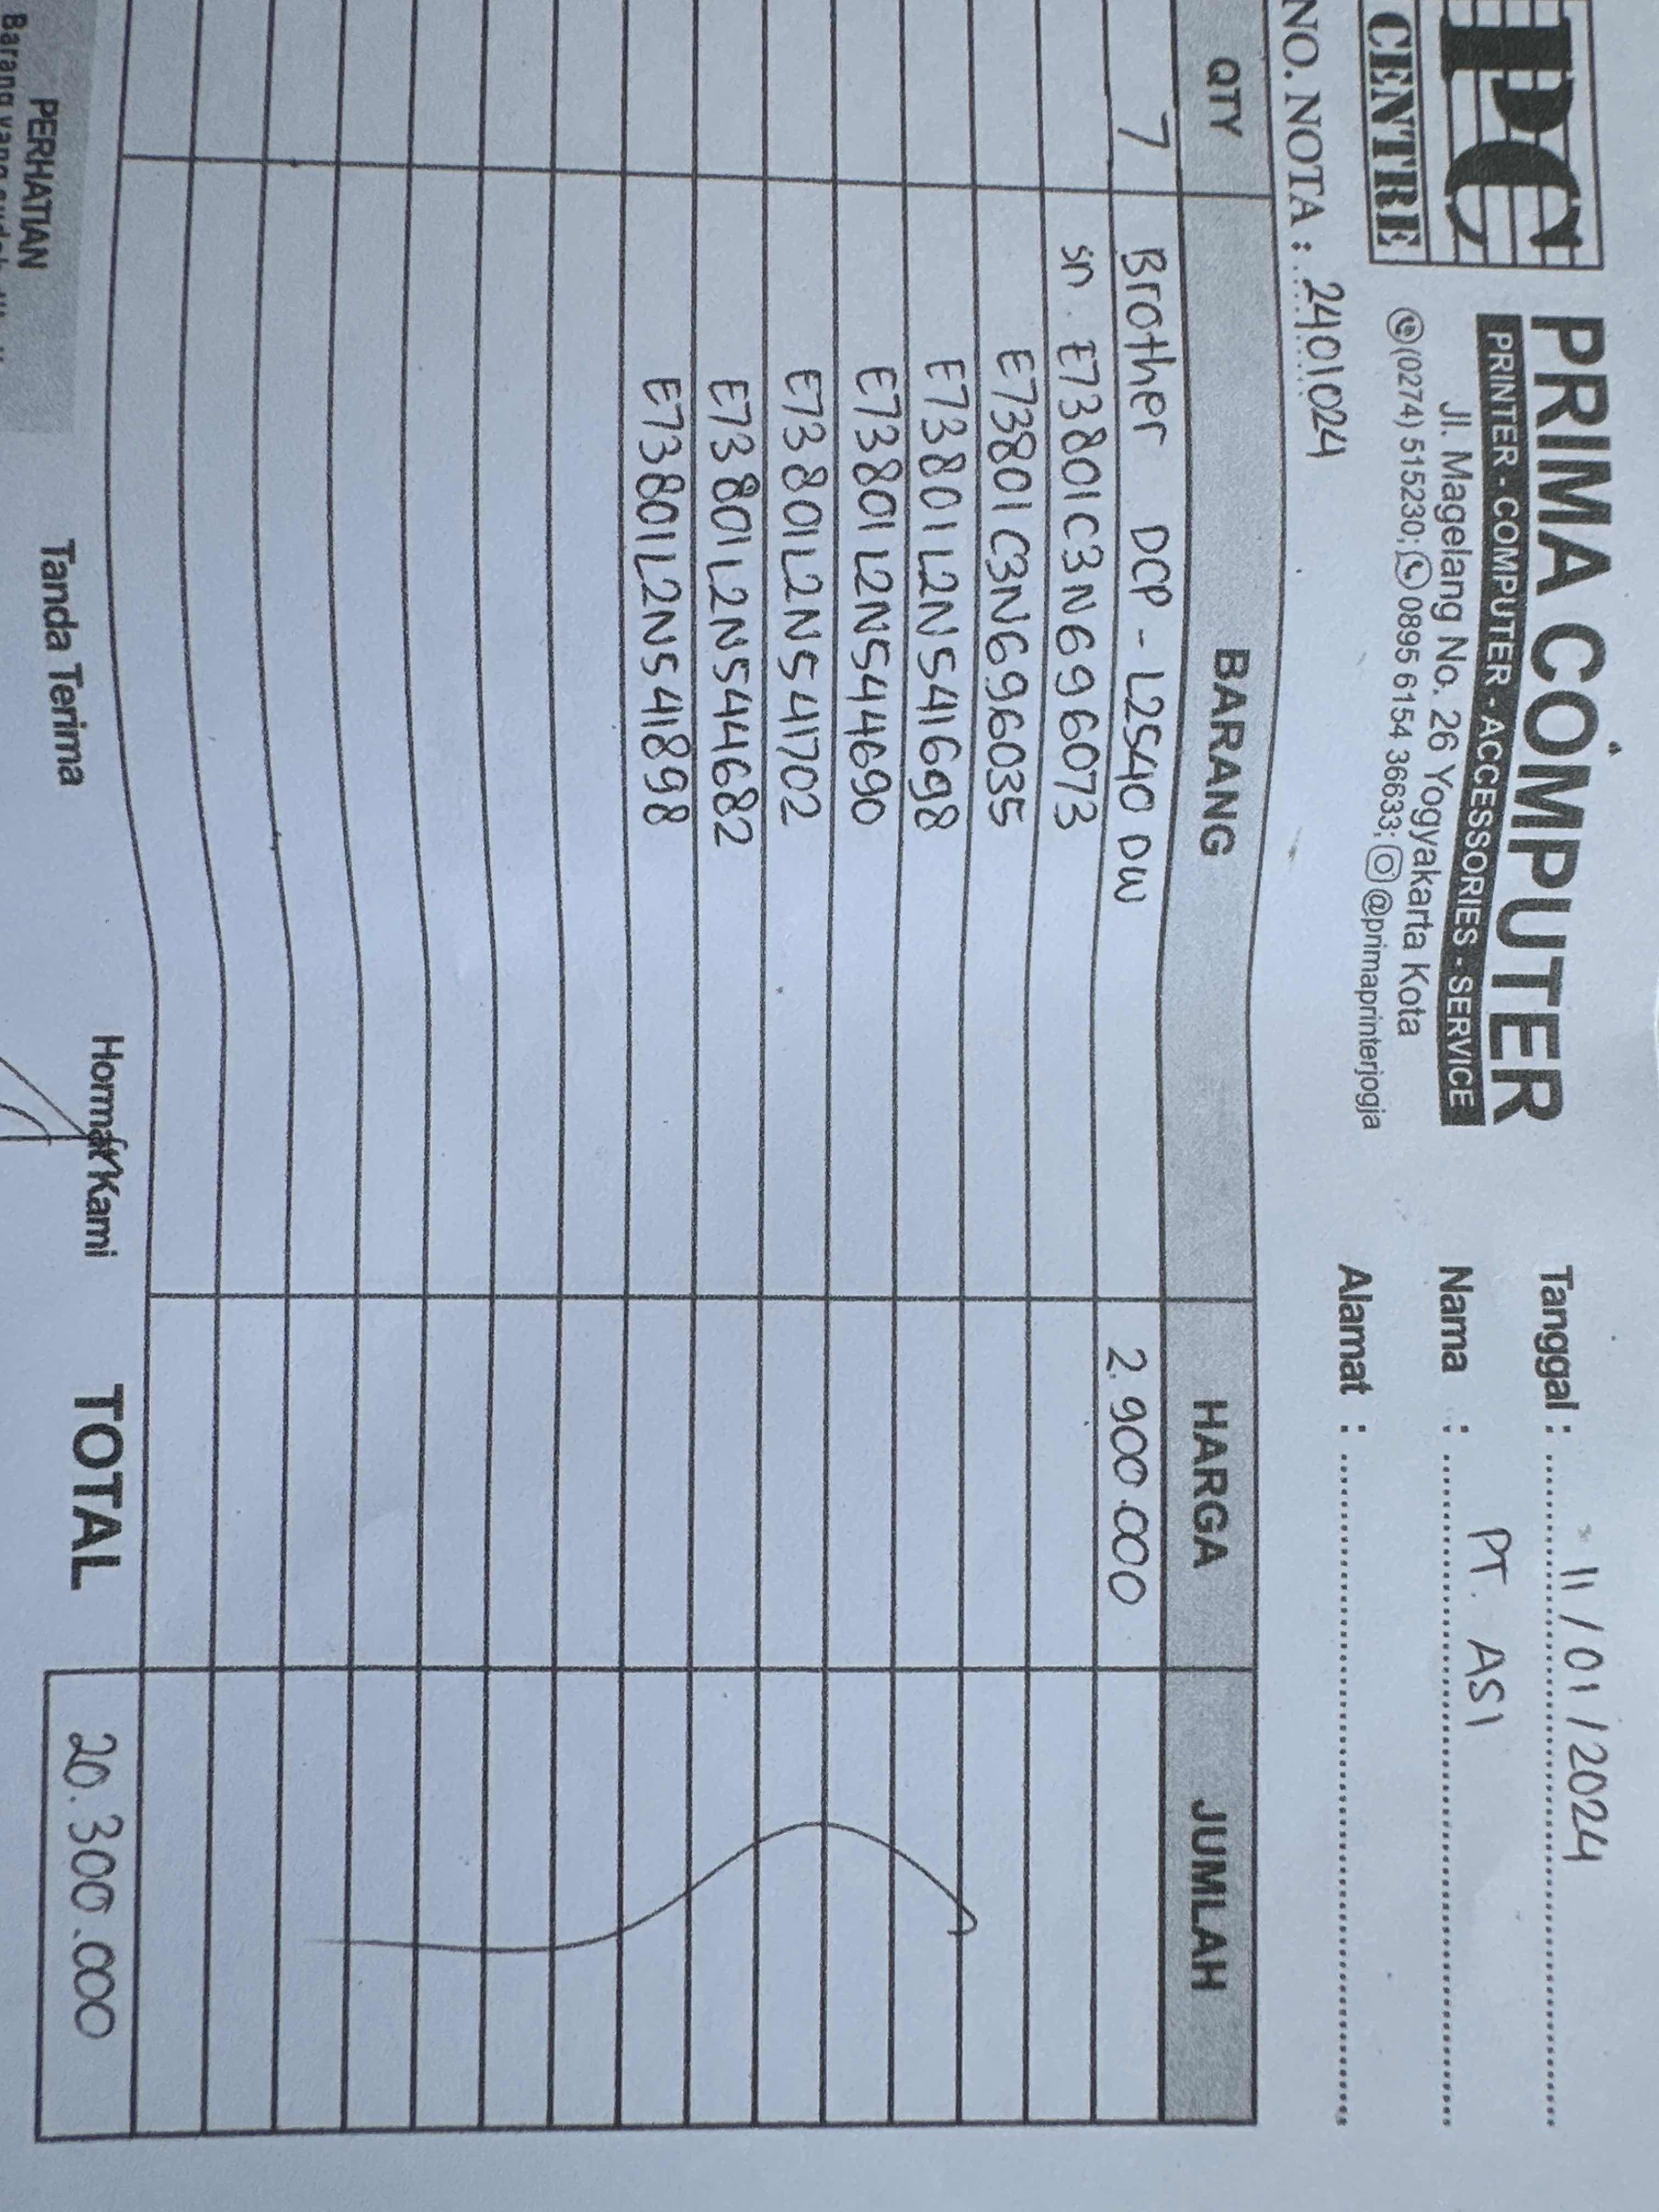 PC
CENTRE
PRIMA COMPUTER
PRINTER - COMPUTER - ACCESSORIES - SERVICE
Jl. Magelang No. 26 Yogyakarta Kota
(0274) 515230; 0895 6154 36633; @primaprinterjogja
Tanggal : 11/01/2024
Nama : PT. ASI
Alamat :
NO. NOTA : 2401024
QTY BARANG HARGA JUMLAH
7 Brother DCP-L2540 DW 2.900.000
sn. E73801C3N696073
E73801C3N696035
E73801L2N541698
E73801L2N544690
E73801L2N541702
E73801L2N544682
E73801L2N541898
PERHATIAN
Tanda Terima
Hormat Kami
TOTAL 20.300.000
Barang yang sudah